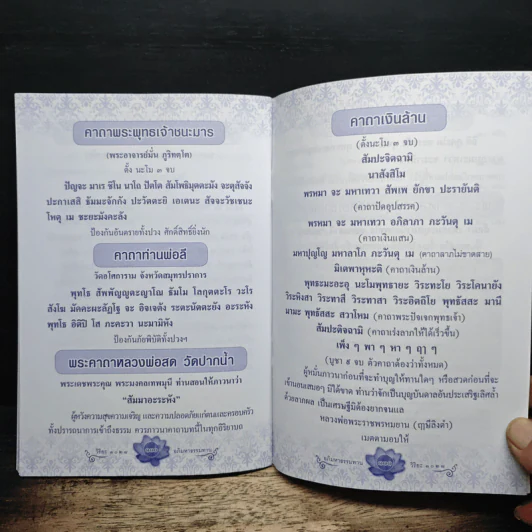 คาถาพระพุทธเจ้าชนะมาร
(พระอาจารย์มั่น ภูริทตฺโต)
ตั้ง นะโม ๓ จบ
ปัญจะ มาเร ชิโน นาโถ ปัตโต สัมโพธิมุตตะมัง จะตุสัจจัง
ปะกาเสสิ ธัมมะจักกัง ปะวัตตะยิ เอเตนะ สัจจะวัชเชนะ
โหตุ เม ชะยะมังคะลัง
ป้องกันอันตรายทั้งปวง ศักดิ์สิทธิ์ยิ่งนัก
คาถาท่านพ่อลี
วัดอโศการาม จังหวัดสมุทรปราการ
พุทโธ สัพพัญญุตะญาโณ ธัมโม โลกุตตะโร วะโร
สังโฆ มัคคะผะลัฏโฐ จะ อิจเจตัง ระตะนัตตะยัง อะระหัง
พุทโธ อิติปิ โส ภะคะวา นะมามิหัง
ป้องกันภัยพิบัติทั้งปวงฯ
พระคาถาหลวงพ่อสด วัดปากน้ำ
พระเดชพระคุณ พระมงคลเทพมุนี ท่านสอนให้ภาวนาว่า
"สัมมาอะระหัง"
ผู้หวังความสุขความเจริญ และความปลอดภัยแก่ตนและครอบครัว
ทั้งปรารถนาการเข้าถึงธรรม ควรภาวนาคาถาบทนี้ในทุกอิริยาบถ
คาถาเงินล้าน
(ตั้งนะโม ๓ จบ)
สัมปะจิตฉามิ
นาสังสิโม
พรหมา จะ มหาเทวา สัพเพ ยักขา ปะรายันติ
(คาถาปัดอุปสรรค)
พรหมา จะ มหาเทวา อภิลาภา ภะวันตุ เม
(คาถาเงินแสน)
มหาปุญโญ มหาลาโภ ภะวันตุ เม (คาถาลาภไม่ขาดสาย)
มิเตพาหุหะติ (คาถาเงินล้าน)
พุทธะมะอะอุ นะโมพุทธายะ วิระทะโย วิระโคนายัง
วิระหิงสา วิระทาสี วิระทาสา วิระอิตถิโย พุทธัสสะ มานี
มามะ พุทธัสสะ สวาโหม (คาถาพระปัจเจกพุทธเจ้า)
สัมปะติจฉามิ (คาถาเร่งลาภให้ได้เร็วขึ้น)
เพ็ง ๆ พา ๆ หา ๆ ฤา ๆ
(บูชา ๙ จบ ตัวคาถาต้องว่าทั้งหมด)
ผู้หมั่นภาวนาก่อนที่จะทำบุญให้ทานใดๆ หรือสวดก่อนที่จะ
หลวงพ่อพระราชพรหมยาน (ฤาษีลิงดำ)
เมตตามอบให้